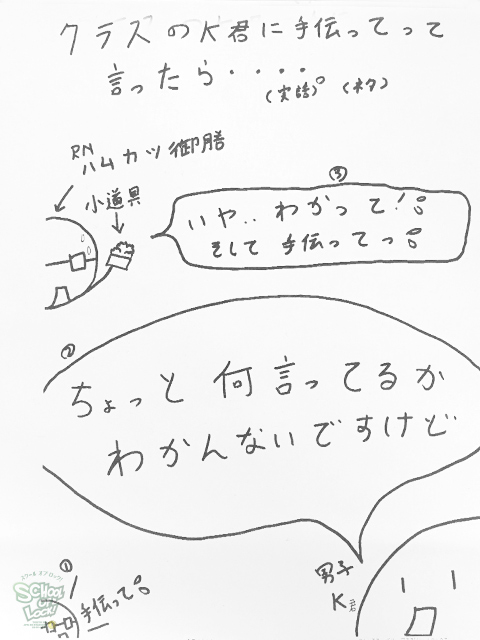 クラスのK君に手伝ってって
言ったら・・・・
(実話)。(ネタ)
RN
ハムカツ御膳
小道具
③
いや‥わかって!
そして手伝ってっ
②
ちょっと何言ってるか
わかんないですけど
①
手伝って
男子
K
スクール オブ ロック!
SCHOOL
OF
LOCK!